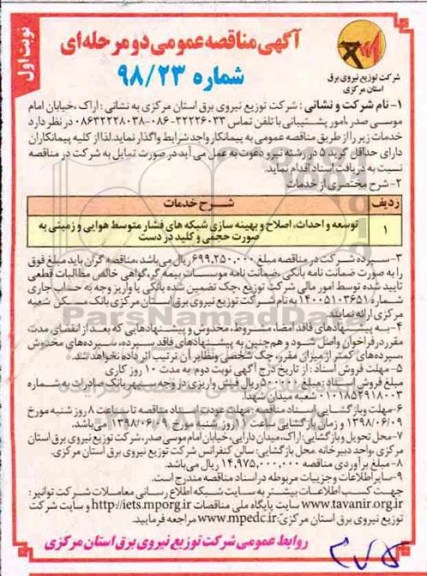 نوبت اول
آگهی مناقصه عمومی دو مرحله‌ای
شماره ۹۸/۲۳
شرکت توزیع نیروی برق
استان مرکزی
۱- نام شرکت و نشانی : شرکت توزیع نیروی برق استان مرکزی به نشانی : اراک ،خیابان امام
موسی صدر ،امور پشتیبانی با تلفن تماس ۳۲۲۲۶۰۳۳-۰۸۶-۰۸۶۳۲۲۲۸۰۳۸ در نظر دارد
خدمات زیر را از طریق مناقصه عمومی به پیمانکار واجد شرایط واگذار نماید.لذا از کلیه پیمانکاران
دارای حداقل گرید ۵ در رشته نیرو دعوت به عمل می آید در صورت تمایل به شرکت در مناقصه
نسبت به دریافت اسناد اقدام نماید.
۲- شرح مختصری از خدمات
ردیف شرح خدمات
۱ توسعه و احداث، اصلاح و بهینه سازی شبکه های فشار متوسط هوایی و زمینی به
صورت حجمی و کلید در دست
۳- سپرده شرکت در مناقصه مبلغ ۶۹۹.۲۵۰.۰۰۰ ریال می‌باشد.مناقصه گران باید مبلغ فوق
را به صورت ضمانت نامه بانکی ،ضمانت نامه موسسات بیمه گر،گواهی خالص مطالبات قطعی
تایید شده توسط امور مالی شرکت توزیع ،چک تضمین شده بانکی یا واریز وجه به حساب جاری
شماره ۱۴۰۰۵۱۰۳۶۵۱ به نام شرکت توزیع نیروی برق استان مرکزی بانک مسکن شعبه
مرکزی ارائه نمایند.
۴- به پیشنهادهای فاقد امضا، مشروط، مخدوش و پیشنهادهایی که بعد از انقضای مدت
مقرر در فراخوان واصل شود و همچنین به پیشنهادهای فاقد سپرده، سپرده‌های مخدوش
،سپرده‌های کمتر از میزان مقرر، چک شخصی و نظایر آن ترتیب اثر داده نخواهد شد.
۵- مهلت فروش اسناد : از تاریخ درج آگهی نوبت دوم به مدت ۱۰ روز کاری
مبلغ فروش اسناد: مبلغ ۵۰۰.۰۰۰ ریال فیش واریزی در وجه سپهر بانک صادرات به شماره
۰۱۰۱۸۵۲۹۱۸۰۰۳ شعبه میدان شهدا.
۶- مهلت و بازگشایی اسناد مناقصه : مهلت عودت اسناد مناقصه تا ساعت ۸ روز شنبه مورخ
۱۳۹۸/۰۶/۰۹ و زمان بازگشایی ساعت ۹ روز شنبه مورخ ۱۳۹۸/۰۶/۰۹ می‌باشد.
۷- محل تحویل و بازگشایی :اراک،میدان دارایی، خیابان امام موسی صدر،شرکت توزیع نیروی برق استان
مرکزی ،واحد دبیرخانه. محل بازگشایی: سالن کنفرانس شرکت توزیع نیروی برق استان مرکزی.
۸- مبلغ برآوردی مناقصه ۱۴,۹۷۵,۰۰۰,۰۰۰ ریال می‌باشد.
۹- سایر اطلاعات و جزییات مربوطه در اسناد مناقصه مندرج است.
جهت کسب اطلاعات بیشتر به سایت شبکه اطلاع رسانی معاملات شرکت توانیر :
www.tavanir.org.ir سایت پایگاه ملی مناقصات http://iets.mporg.ir و سایت شرکت
توزیع نیروی برق استان مرکزی: www.mpedc.ir مراجعه فرمایید.
روابط عمومی شرکت توزیع نیروی برق استان مرکزی
ParsNamadData